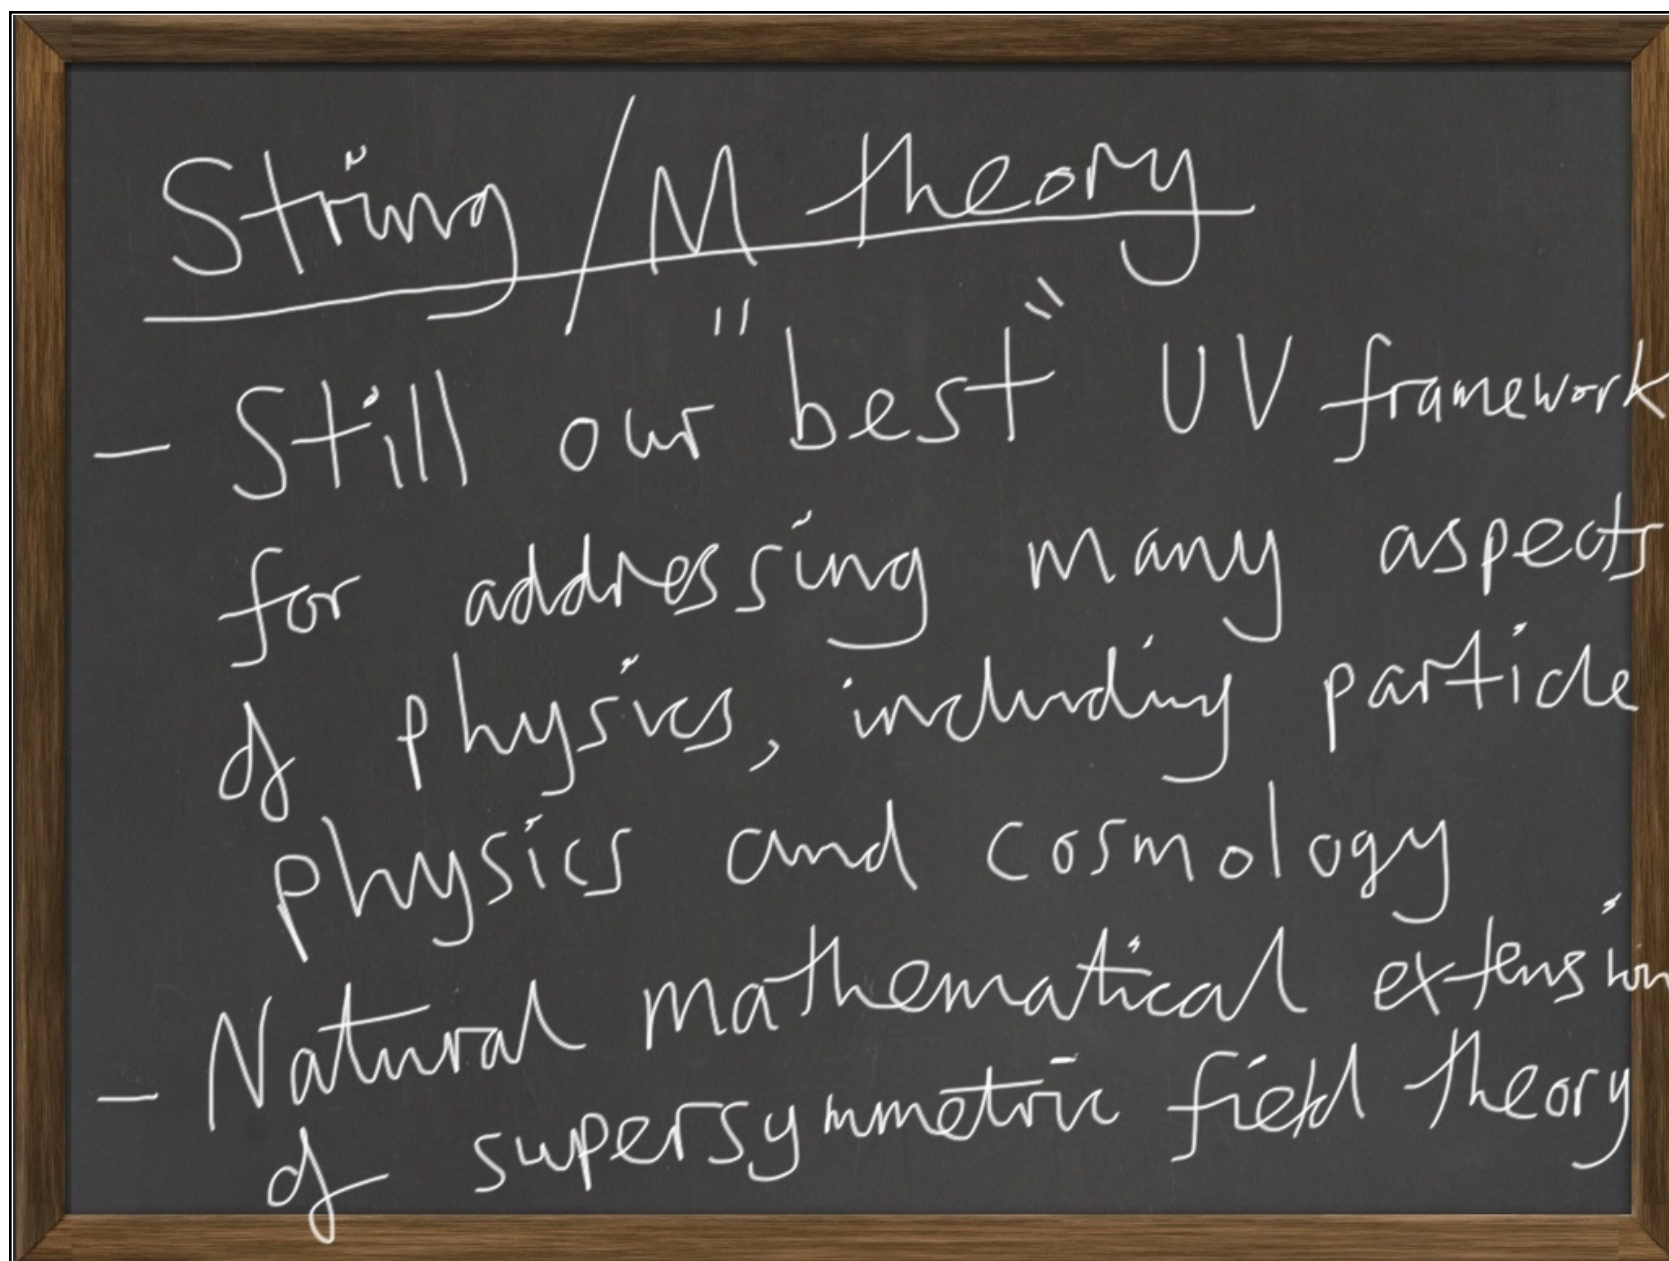 String/M theory
- Still our "best" UV framework
for addressing many aspects
of physics, including particle
physics and cosmology
- Natural mathematical extension
of supersymmetric field theory